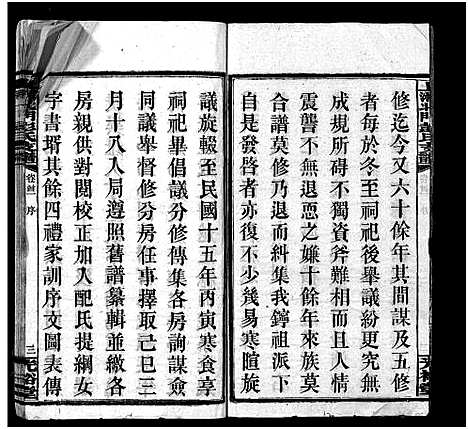 修迄今又六十餘年其間謀及五修
者不少於冬至祠祀後舉議紛紛無
成規所碍不獨資斧難相而且莫不
震聾不無退恧之嫌十餘年來族莫
合譜莫修乃退而糾集我鐏祖派下
自是發啓者亦復不少幾易寒暄旋
議旋輟至民國十五年丙寅寒食享
祠祀畢倡議分修傳集各房詢謀僉
同議舉督修分房任事擇取三
月十八入局遵照舊譜纂輯並繳各
房親供對閱校正加入配氏提綱女
字書壻其餘四禮家訓序文圖表傳
卷首 序
三 光裕堂